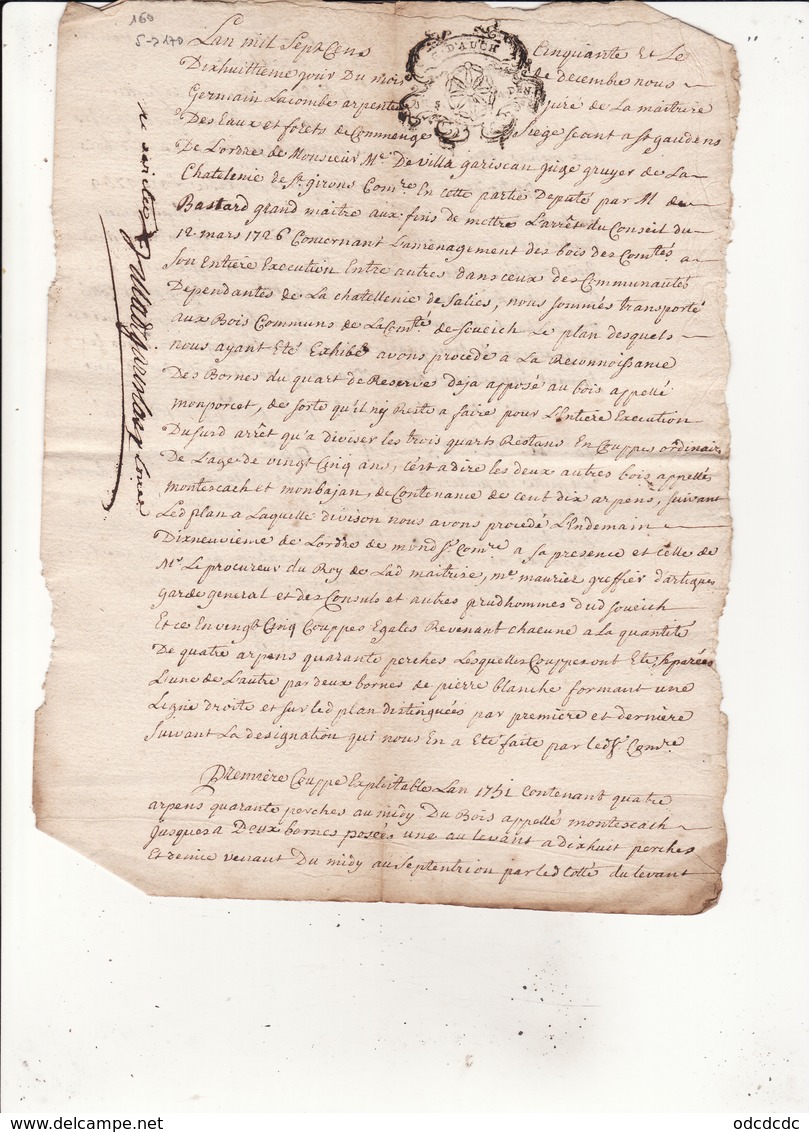 160
5-7 170
G D'AUCH
DEN
S
Lan mil Sept Cens Cinquante Et Le
Dixhuittieme jour Du mois de decembre nous
Germain Lacombe arpenteur juré de La maitrise
Des Eaux et forets de Commenge Siege Seant a St gaudens
De Lordre de Monsieur Me De villa gariscan juge gruyer de La
Chatelenie de St girons Comre En cette partie Deputé par M de
Bastard grand maitre aux fins de mettre Larrêt du Conseil du
12 mars 1726 Concernant Lamenagement des bois des Comtés a
Son Entiere Execution Entre autres dans ceux des Communautés
Dependantes de La chatellenie de Salies, nous sommés transporté
aux Bois Communs de La Comté de Soueich Le plan desquels
nous ayant Eté Exhibé avons procedé a La Reconnoissance
Des Bornes du quart de Reserve deja apposé au bois appellé
monporcet, de sorte qu'il ny Reste a faire pour L'Entiere Execution
Dusurd arrêt qu'a diviser les trois quarts Restans En Couppes ordinaires
De Lage de vingt Cinq ans, c'est a dire les deux autres bois appellés
montescach et monbajan, de Contenance de cent dix arpens, suivant
Led plan a Laquelle divison nous avons procedé L'Endemain
Dixneuvieme de Lordre de mond sr Comre a sa presence et celle de
Mr Le procureur du Roy de Lad maitrise, me maurier greffier d'artigues
garde general et des Consuls et autres prudhommes dud Soueich
Et ce En vingt Cinq Couppes Egales Revenant chacune a La quantité
De quatre arpens quarante perches Lesquelles Coupperont Eté Separées
L'une de L'autre par deux bornes de pierre blanche formant une
Ligne droite et sur led plan distinguées par premiere et derniere
suivant La designation qui nous En a Eté faite par led sr Comre
Premiere Couppe Exploitable Lan 1751 contenant quatre
arpens quarante perches au midy Du Bois appellé montescach
jusques a Deux bornes posées une au levant a dixhuit perches
Et demie venant Du midy au Septentrion par led Cotté du levant